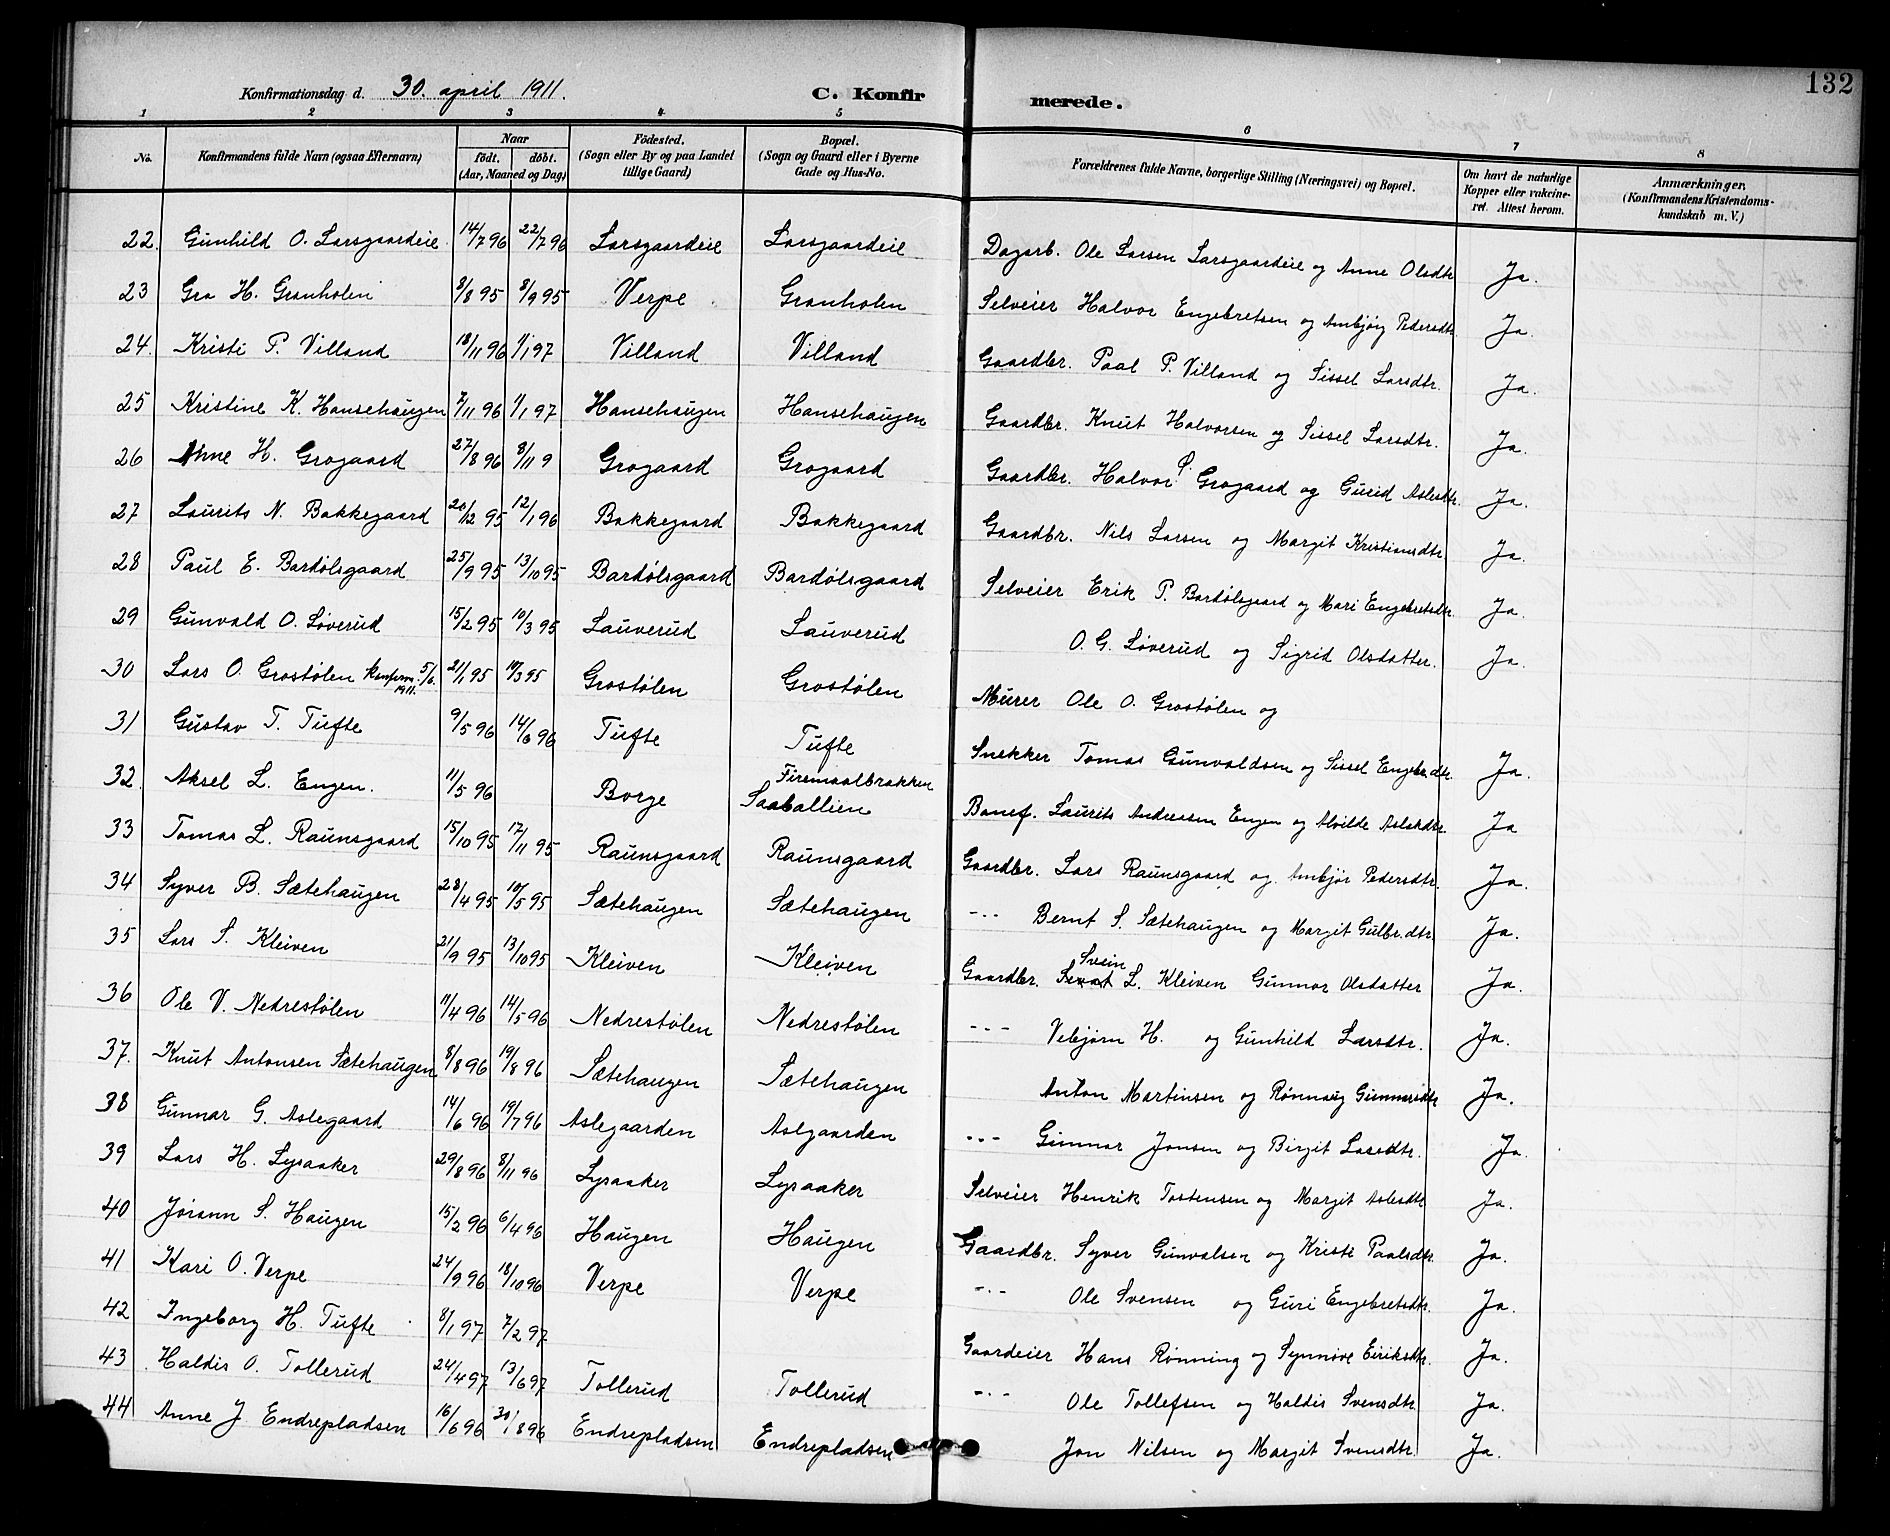 132
Konfirmationsdag d. 30. april 1911. C. Konfirmerede.
1 2 3 4 5 6 7 8
No. Konfirmandens fulde Navn (ogsaa Efternavn) Naar födt. döbt. (Aar, Maaned og Dag) Födested. (Sogn eller By og paa Landet tillige Gaard) Bopæl. (Sogn og Gaard eller i Byerne Gade og Hus-No. Forældrenes fulde Navne, borgerlige Stilling (Næringsvei) og Bopæl. Om havt de naturlige Kopper eller vakcineret. Attest herom. Anmærkninger. (Konfirmandens Kristendomskundskab m. V.)
22. Gunhild O. Larsgaardeie. 14/7 96 22/7 96 Larsgaardeie Larsgaardeie Dagarb. Ole Larsen Larsgaardeie og Anne Olsdtr Ja.
23 Gro H. Granholen 8/8 95 8/9 95 Verpe Granholen Selveier Halvor Engebretsen og Ambjørg Pedersdtr Ja.
24. Kristi P. Villand 18/11 96 1/1 97 Villand Villand Gaardbr. Paal P. Villand og Sissel Larsdtr. Ja.
25 Kristine K. Hansehaugen 7/11 96 1/1 97 Hansehaugen Hansehaugen Gaardbr. Knut Halvorsen og Sissel Larsdtr. Ja.
26 Anne H. Grogaard 27/8 96 8/11 9 Grogaard Grogaard Gaardbr. Halvor S. Grogaard og Gurid Aslesdtr. Ja.
27 Laurits N. Bakkegaard 20/12 95 12/1 96 Bakkegaard Bakkegaard Gaardbr. Nils Larsen og Margit Kristiansdtr. Ja.
28 Paul E. Bardølsgaard 25/9 95 13/10 95 Bardølsgaard Bardølsgaard Selveier Erik P. Bardølsgaard og Mari Engebretsdtr. Ja.
29 Gunvald O. Løverud 15/2 95 10/3 95 Lauverud Lauverud O. G. Løverud og Sigrid Olsdatter. Ja.
30 Lars O. Grostølen konfirm. 5/6. 1911. 21/1 95 10/3 95 Grostølen Grostølen Murer Ole O. Grostølen og
31 Gustav T. Tufte 9/5 96 14/6 96 Tufte Tufte Snekker Tomas Gunvaldsen og Sissel Engebr.dtr. Ja.
32. Aksel L. Engen. 11/5 96 Borge Firemaalbrakken Saaballien Banef. Laurits Andreassen Engen og Alvilde Aslakdtr. Ja
33 Tomas L. Raunsgaard 15/10 95 17/11 95 Raunsgaard Raunsgaard Gaardbr. Lars Raunsgaard og Ambjør Pedersdtr. Ja.
34 Syver B. Sætehaugen 28/4 95 10/5 95 Sætehaugen Sætehaugen --- Bernt S. Sætehaugen og Margit Gulbr.dtr. Ja.
35 Lars S. Kleiven 21/9 95 13/10 95 Kleiven Kleiven Gaardbr. Svein L. Kleiven Gunnor Olsdatter Ja.
36 Ole V. Nedrestølen 11/4 96 14/5 96 Nedrestølen Nedrestølen --- Vebjørn H. og Gunhild Larsdtr. Ja.
37. Knut Antonsen Sætehaugen 8/8 96 19/8 96 Sætehaugen Sætehaugen Anton Martinsen og Rønnaug Gunnarsdtr Ja.
38 Gunnar G. Aslegaard 14/6 96 19/7 96 Aslegaarden Aslgaarden --- Gunnar Jonsen og Birgit Larsdtr. Ja.
39 Lars H. Lysaaker 29/8 96 8/11 96 Lysaaker Lysaaker Selveier Henrik Tostensen og Margit Aslesdtr Ja.
40 Jørann S. Haugen 15/2 96 6/4 96 Haugen Haugen Gaardbr. Syver Gunvalsen og Kristi Paalsdtr. Ja.
41 Kari O. Verpe 24/9 96 18/10 96 Verpe Verpe -.- Ole Svensen og Guri Engebretsdtr. Ja.
42 Ingeborg H. Tufte 8/1 97 7/2 97 Gaardeier Hans Rønning og Synnøve Eiriksdtr. Ja.
43 Haldis O. Tollerud 24/4 97 13/6 97 Tollerud Tollerud -.- Ole Tollefsen og Haldis Svensdtr Ja.
44 Anne J Endrepladsen 16/6 96 30/8 96 Endrepladsen Endrepladsen Jon Nilsen og Margit Svensdtr. Ja.